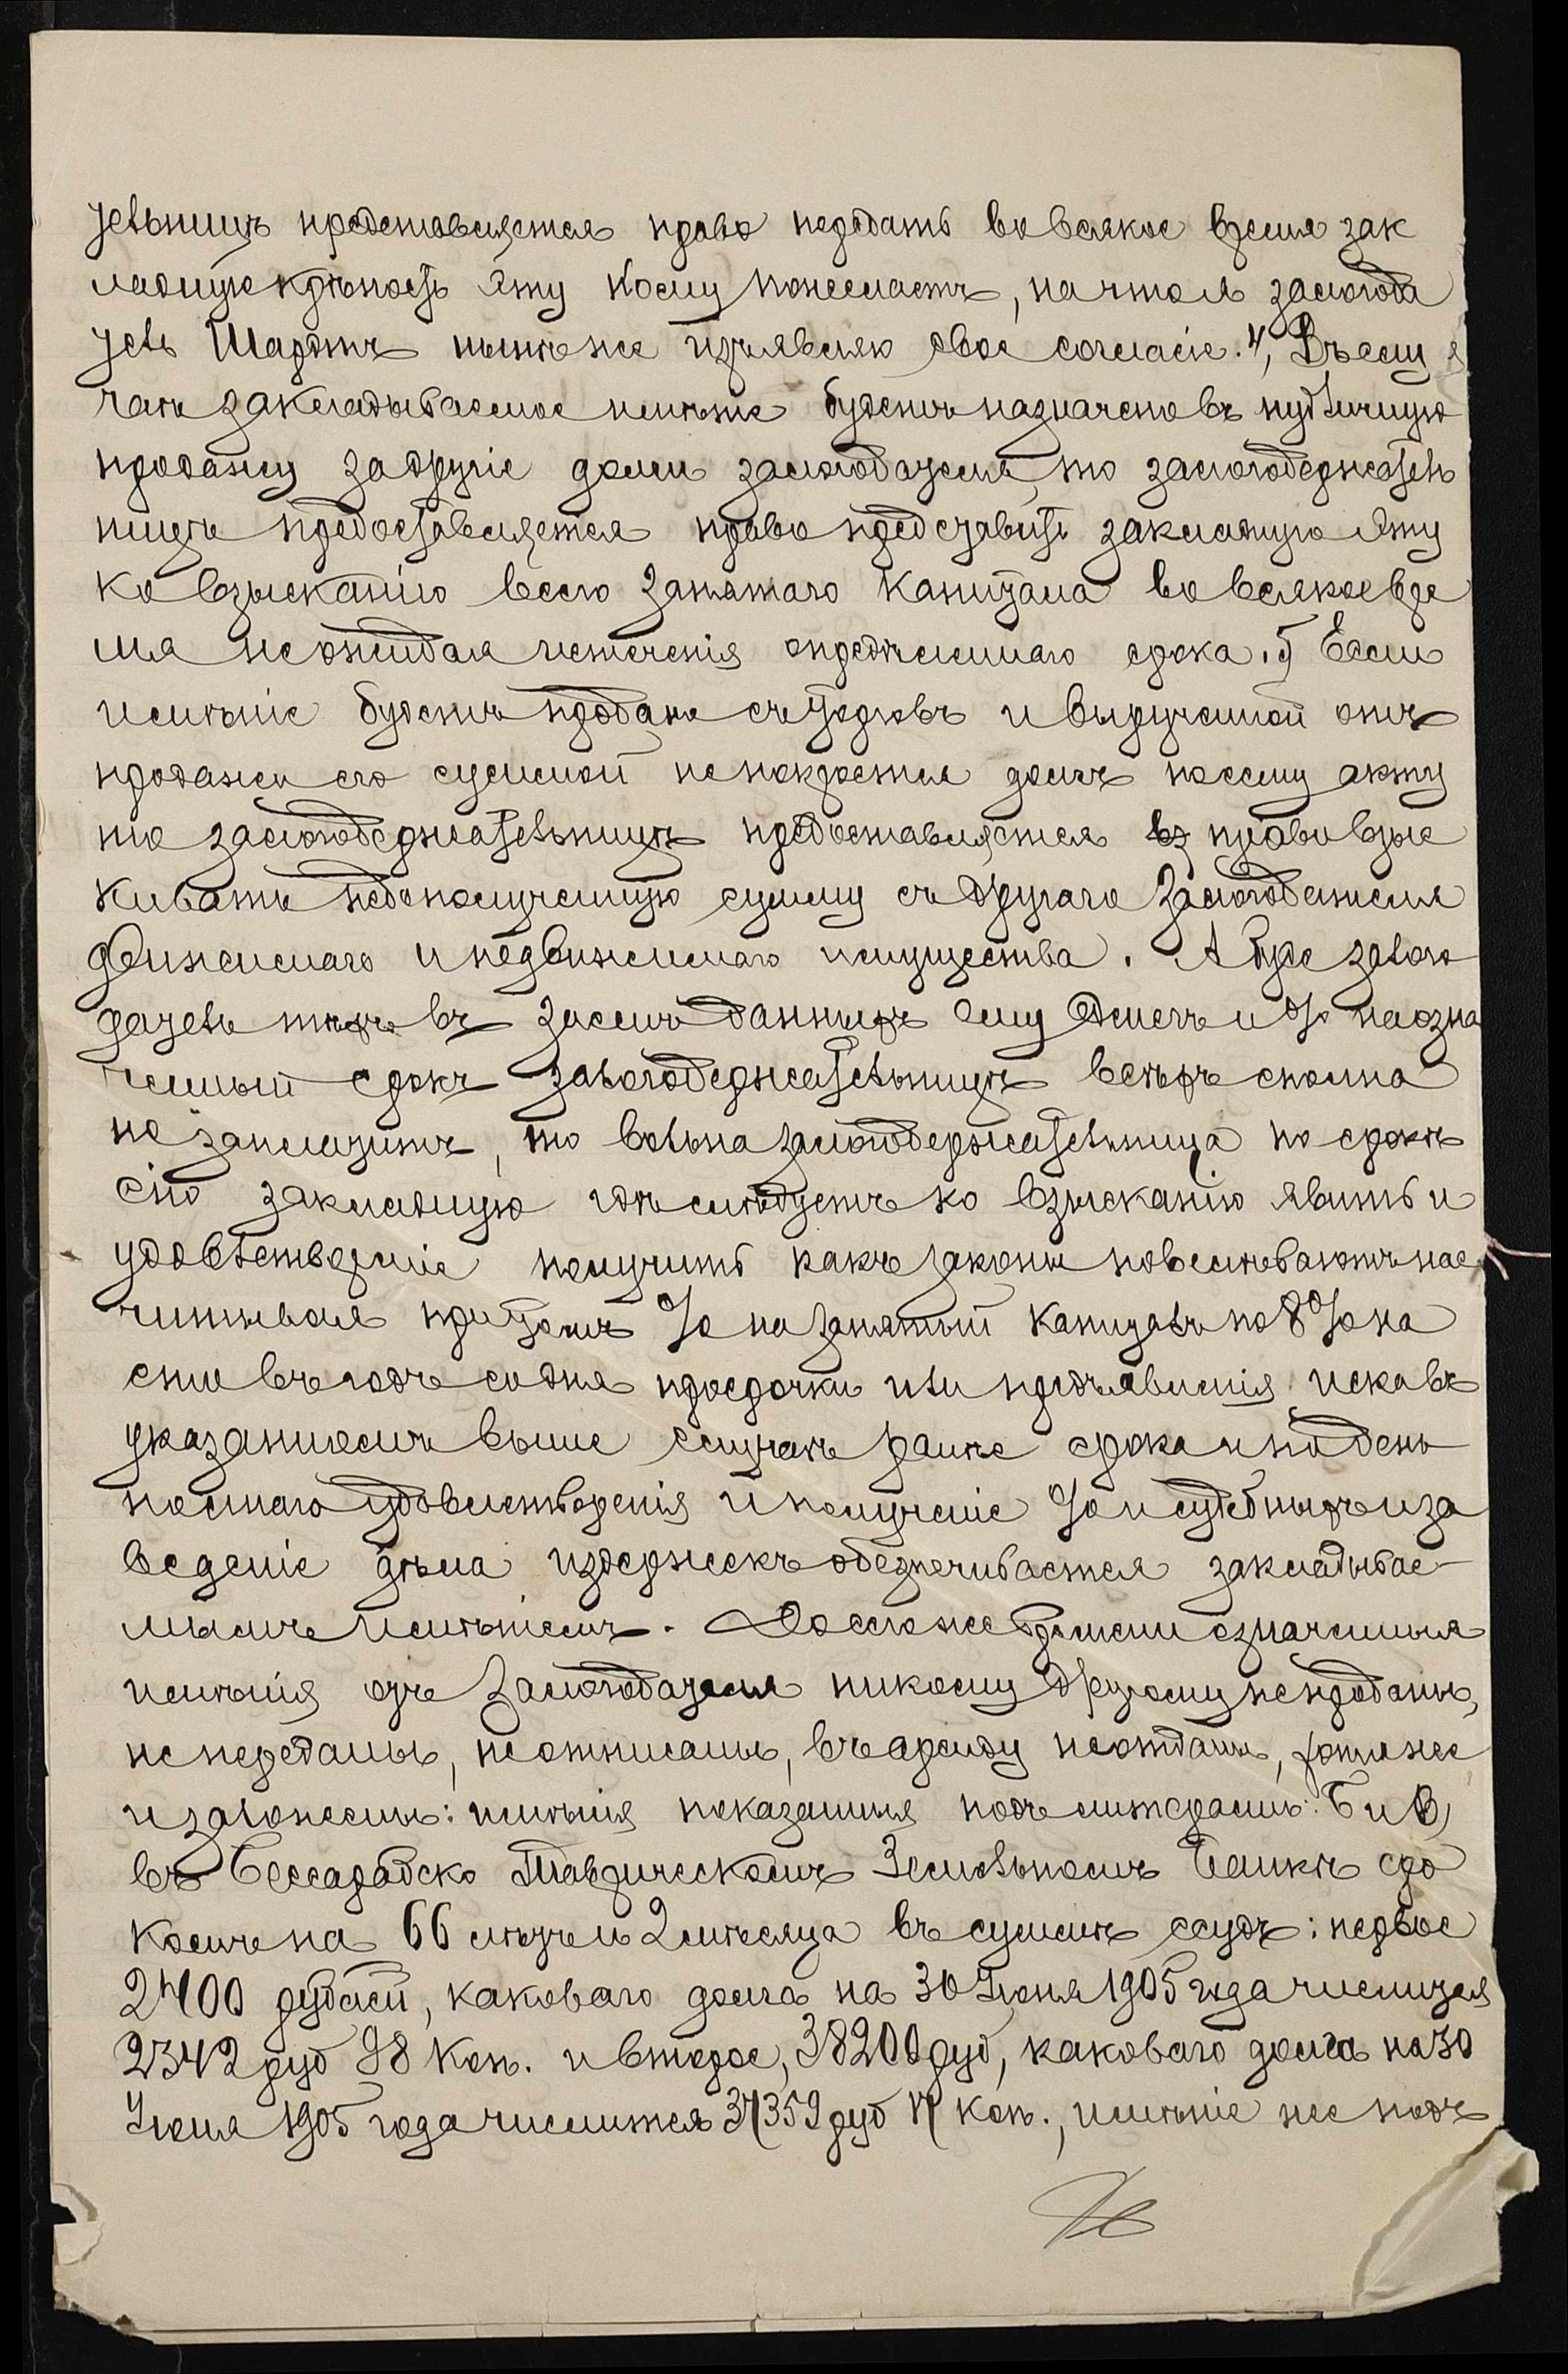 тельницѣ предоставляется право передать во всякое время зак
ладную крѣпость эту кому пожелаетъ, на что я залогода
тель Шарфъ нынѣ же изъявляю свое согласіе. 4, Въ слу
чаѣ закладываемое имѣніе будетъ назначено въ публичную
продажу за другіе долги залогодателя, то залогодержатель
ницѣ предоставляется право представить закладную эту
ко взысканію всего занятаго капитала во всякое вре
мя не ожидая истеченія опредѣленнаго срока. 5, Если
имѣніе будетъ продано съ торговъ и вырученной отъ
продажи его суммой не покроется долгъ по сему акту
то залогодержательницѣ предоставляется право взыс
кивать недополученную сумму съ другаго залогодателя
движимаго и недвижимаго имущества. А буде залого
датель тѣхъ въ заемъ данныхъ ему денегъ и % на озна
ченный срокъ залогодержательницѣ всѣхъ сполна
не заплатитъ, то вольна залогодержательница по срокѣ
сію закладную гдѣ слѣдуетъ ко взысканію явить и
удовлетвореніе получить какъ законы повелѣваютъ нас
читывая при томъ % на занятый капиталъ по 8 % на
сто въ годъ со дня просрочки или предъявленія иска въ
указанномъ выше случаѣ ранѣе срока и по день
полнаго удовлетворенія и полученіе % и судебныхъ и за
веденіе дѣла издержекъ обезпечивается закладывае-
мымъ имѣніемъ. До сего же времени означенныя
имѣнія отъ залогодателя никому другому не проданы,
не переданы, не отписаны, въ аренду не отданы, хотя же
и заложены: имѣнія показанныя подъ литерами: Б и В,
въ Бессарабско Таврическомъ Земельномъ Банкѣ сро
комъ на 66 лѣтъ и 2 мѣсяца въ суммѣ ссудъ: первое
2400 рублей, каковаго долга на 30 Іюня 1905 года числится
2342 руб 98 коп. и второе, 38200 руб, каковаго долга на 30
Іюня 1905 года числится 37359 руб 17 коп., имѣніе же подъ